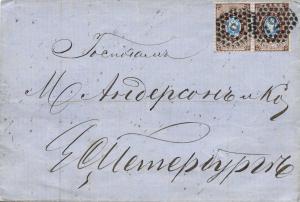 Господамъ
М. Андерсонъ и Ко
С. Петербургъ